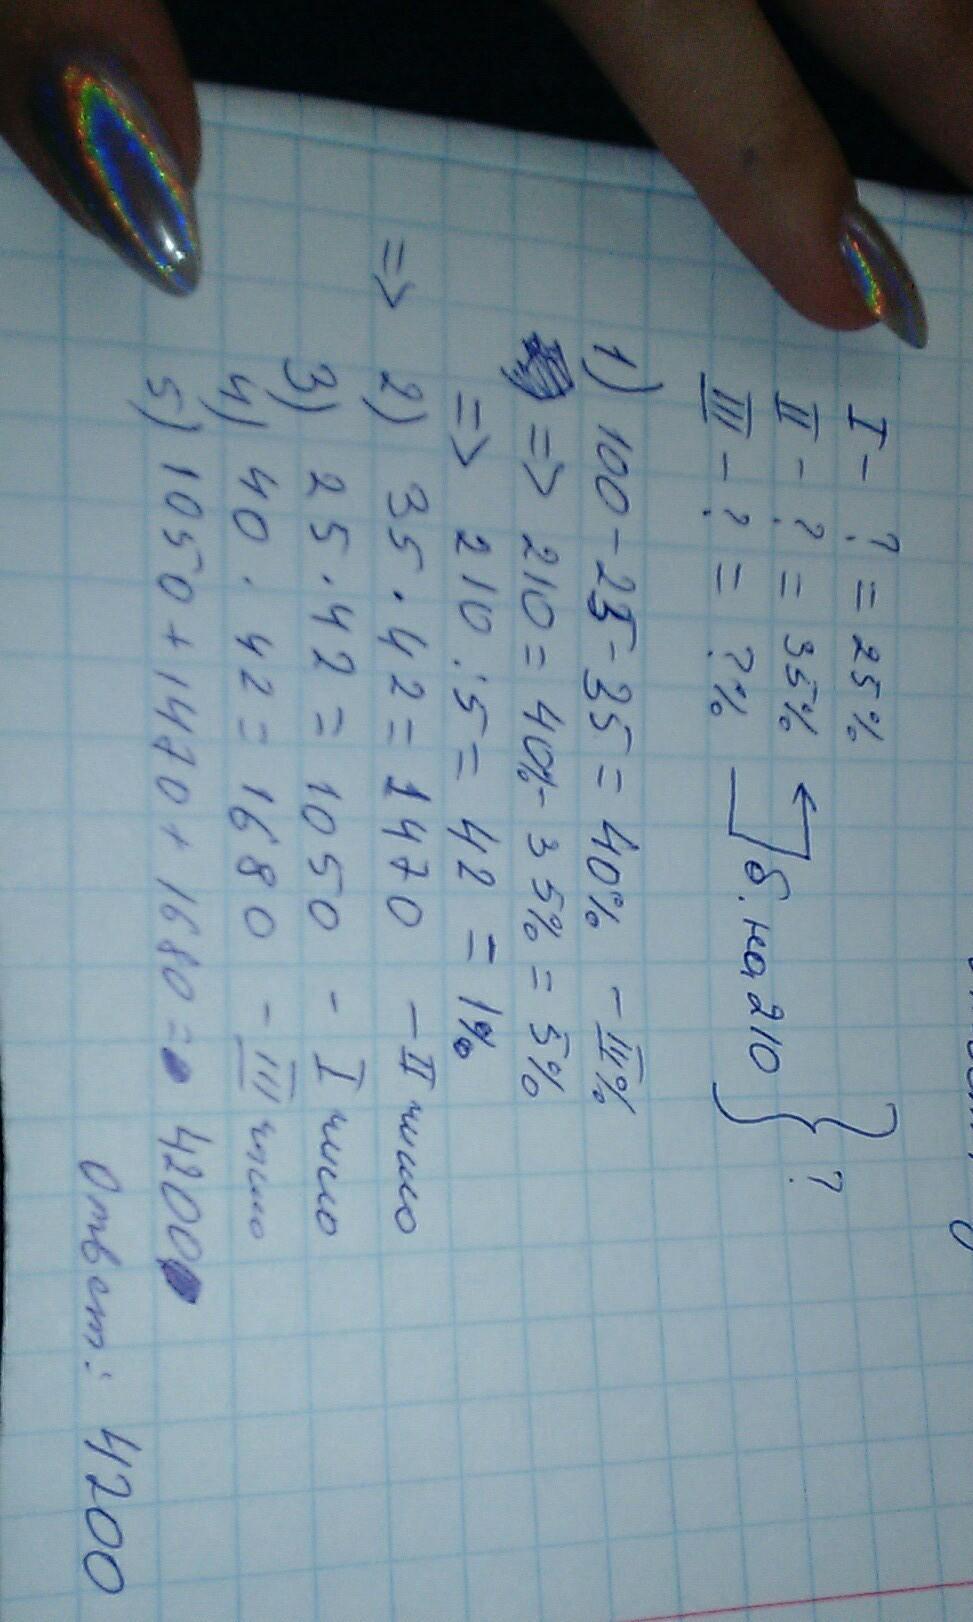 I - ? = 25%
II - ? = 35%
III - ? = ?% б. на 210 } ?
1) 100 - 25 - 35 = 40% - III%
=> 210 = 40% - 35% = 5%
=> 210 : 5 = 42 = 1%
=> 2) 35 · 42 = 1470 - II число
3) 25 · 42 = 1050 - I число
4) 40 · 42 = 1680 - III число
5) 1050 + 1470 + 1680 = 4200
Ответ: 4200